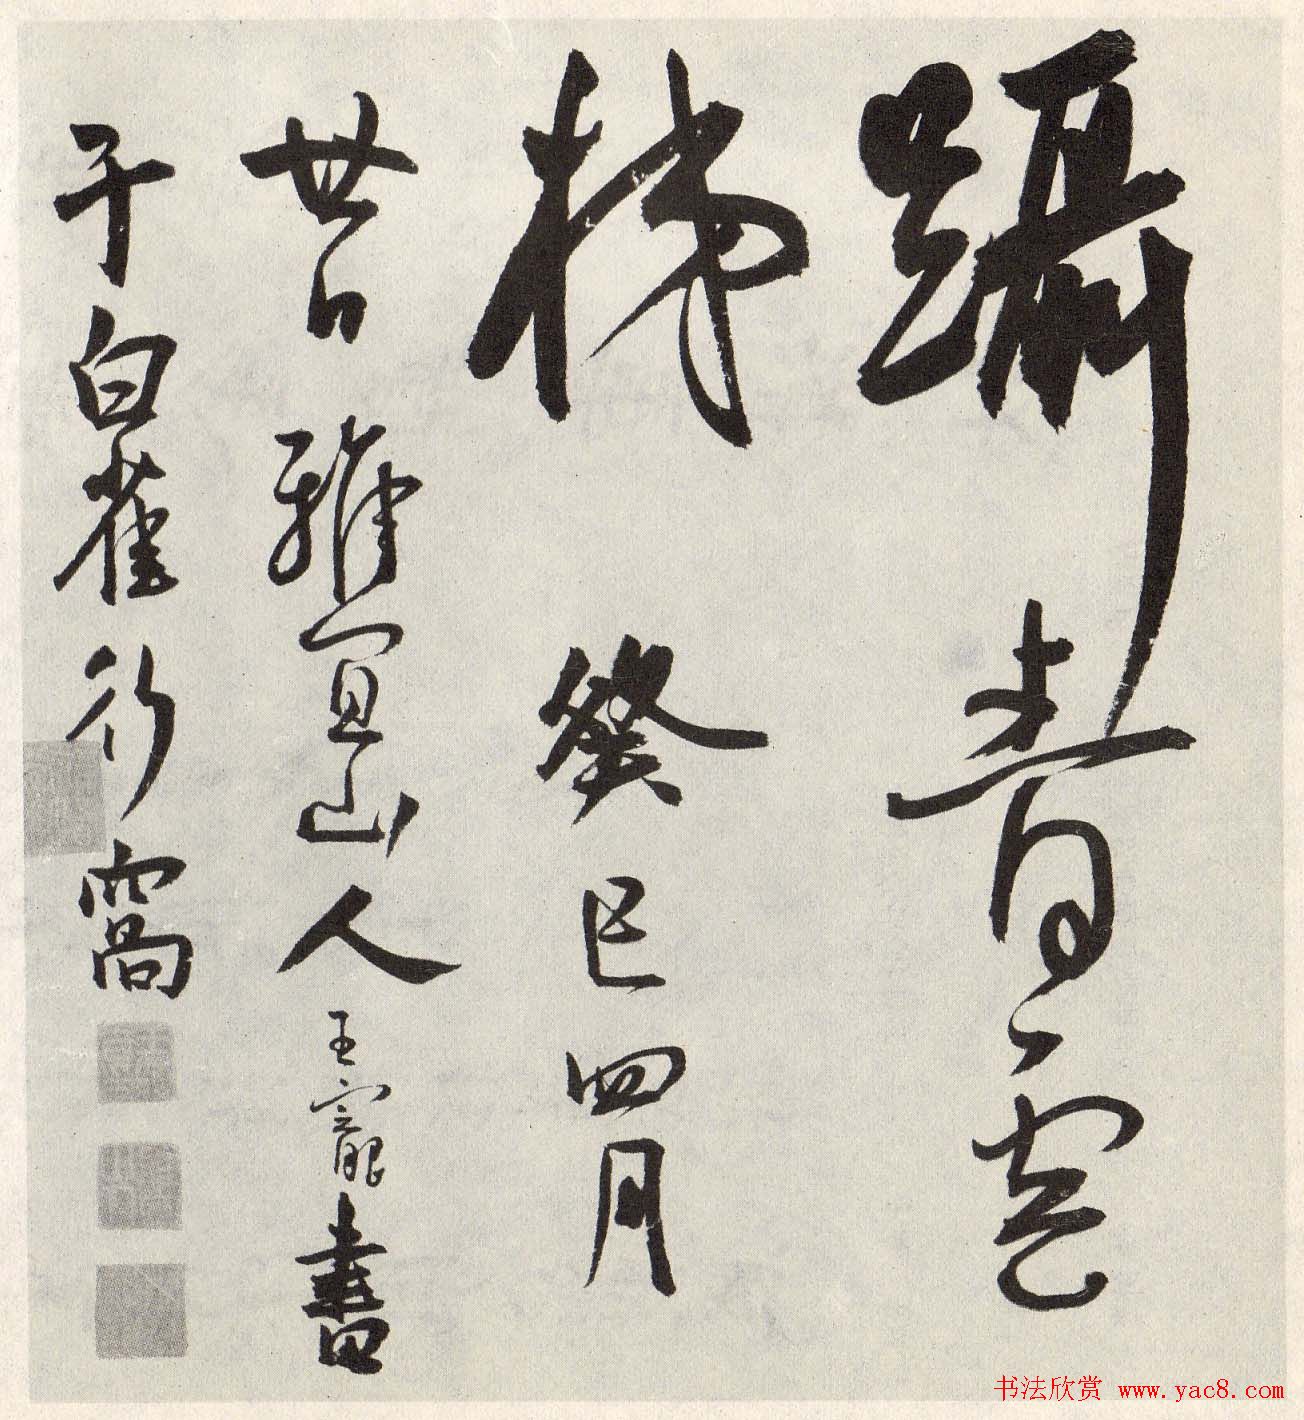 躡青雲
梯 癸巳四月
日 雅宜山人王寵書
于白雀行窩
书法欣赏 www.yac8.com